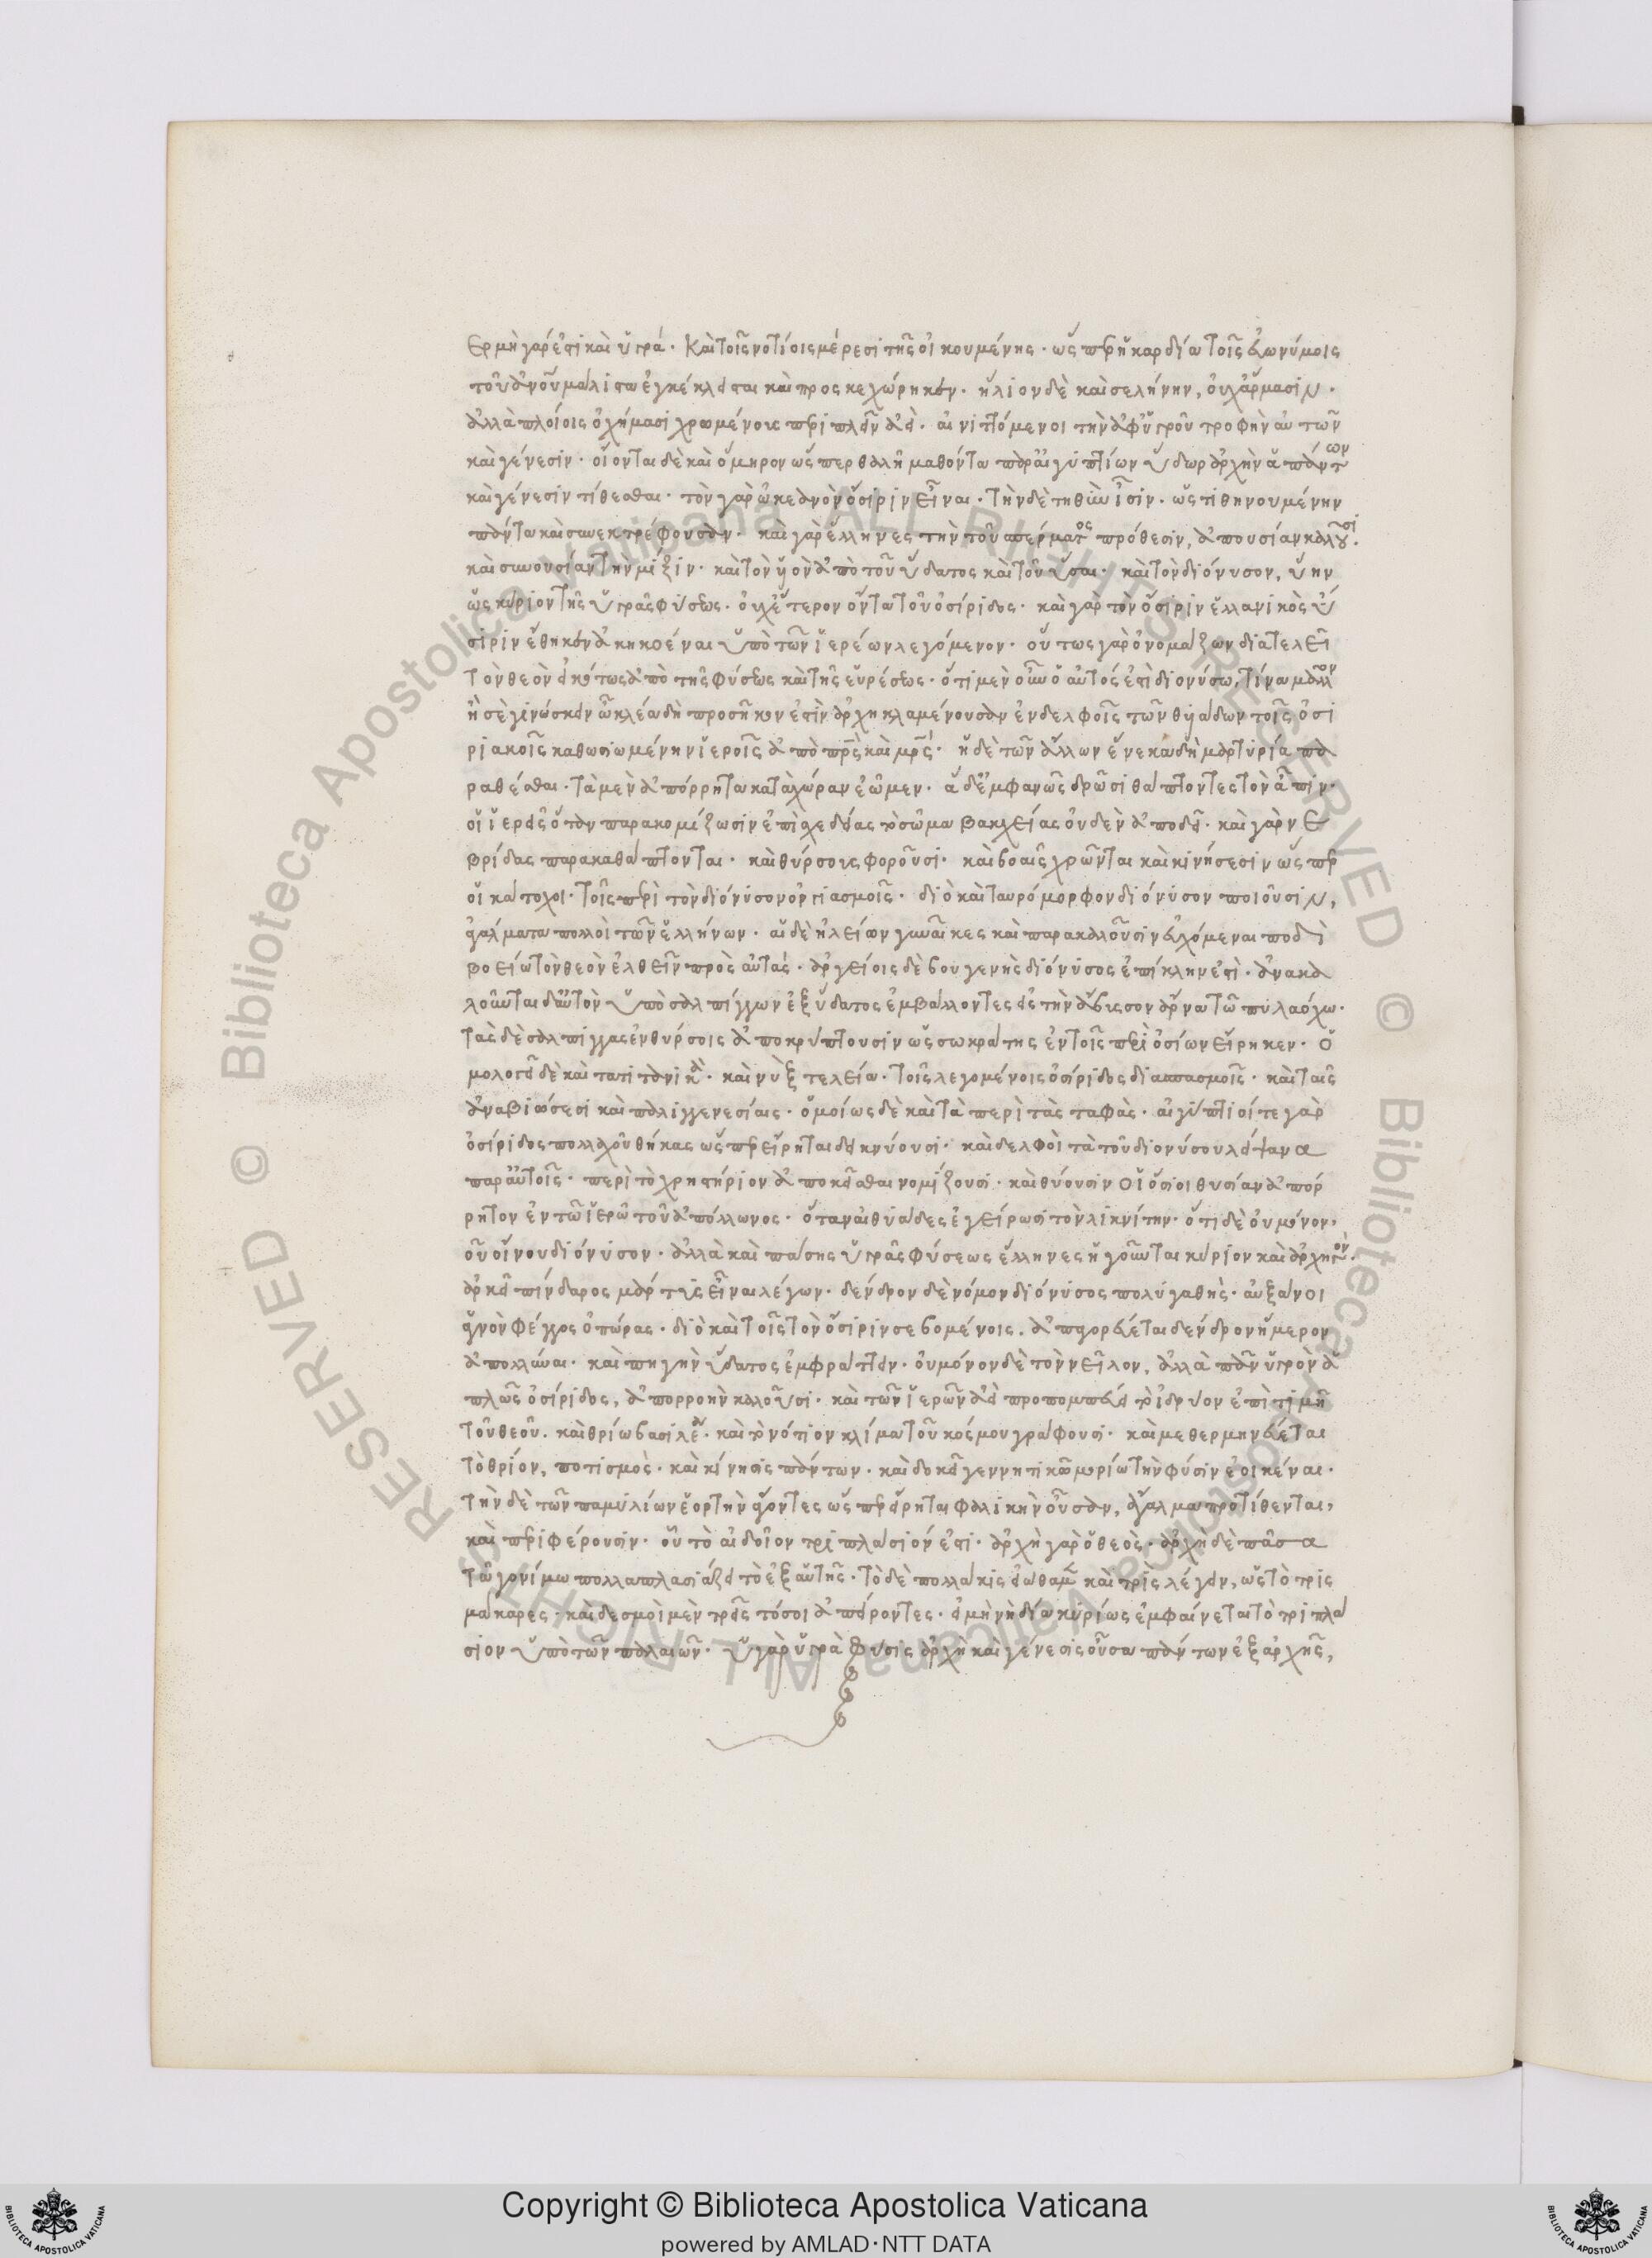 ερμὴ γάρ ἐστι καὶ ὑγρά· καὶ τοῖς νοτίοις μέρεσι τῆς οἰκουμένης· ὥσπερ ἡ καρδία τοῖς εὐωνύμοις
τοῦ ἀνοῦ μάλιστα ἐγκέκλεισται καὶ προσκεχώρηκεν· ἥλιον δὲ καὶ σελήνην, οὐχ ἅρμασιν·
ἀλλὰ πλοίοις ὀχήμασι χρωμένους περιπλεῖν ἀεὶ· αἰνιττόμενοι τὴν ἀφ' ὑγροῦ τροφὴν αὐτῶν
καὶ γένεσιν· οἴονται δὲ καὶ ὅμηρον ὥσπερ θαλῆ μαθόντα παρ' αἰγυπτίων ὕδωρ ἀρχὴν ἁπάντων
καὶ γένεσιν τίθεσθαι· τὸν γὰρ ὠκεανὸν ὄσιριν εἶναι· τὴν δὲ τηθὺν ἶσιν· ὡς τιθηνουμένην
πάντα καὶ συνεκτρέφουσαν· καὶ γὰρ ἕλληνες τὴν τοῦ σπέρματος πρόθεσιν, ἀπουσίαν καλοῦσι·
καὶ συνουσίαν τὴν μίξιν· καὶ τὸν ὑὸν ἀπὸ τοῦ ὕδατος καὶ τοῦ ὗσαι· καὶ τὸν διόνυσον, ὕην
ὡς κύριον τῆς ὑγρᾶς φύσεως· οὐχ ἕτερον ὄντα τοῦ ὀσίριδος· καὶ γὰρ τὸν ὄσιριν ἑλλάνικος ὕ
σιριν ἔθηκεν ἀκηκοέναι ὑπὸ τῶν ἱερέων λεγόμενον· οὕτως γὰρ ὀνομάζων διατελεῖ
τὸν θεὸν εἰκότως ἀπὸ τῆς φύσεως καὶ τῆς εὑρέσεως· ὅτι μὲν οὖν ὁ αὐτός ἐστι διονύσω, τίνα μᾶλλον
ἢ σὲ γινώσκειν ὦ κλέα δὴ προσῆκον ἐστὶν ἀρχηκλα μένουσαν ἐν δελφοῖς τῶν θυιάδων τοῖς ὀσι
ριακοῖς καθωσιωμένην ἱεροῖς ἀπὸ πρς καὶ μρς· ἡ δὲ τῶν ἄλλων ἕνεκα δὴ μαρτύρια πα
ραθέσθαι· τὰ μὲν ἀπόρρητα κατὰ χώραν ἐῶμεν· ἃ δ' ἐμφανῶς δρῶσι θάπτοντες τὸν ἆπιν·
οἱ ἱερεῖς ὅταν παρακομίζωσιν ἐπὶ σχεδίας τὸ σῶμα βακχείας οὐδὲν ἀποδεῖ· καὶ γὰρ νε
βρίδας παρακαθάπτονται· καὶ θύρσους φοροῦσι· καὶ βοαῖς χρῶνται καὶ κινήσεσιν ὥσπερ
οἱ κάτοχοι· τοῖς περὶ τὸν διόνυσον ὀργιασμοῖς· διὸ καὶ ταυρόμορφον διόνυσον ποιοῦσιν,
ἀγάλματα πολλοὶ τῶν ἑλλήνων· αἱ δὲ ἠλείων γυναῖκες καὶ παρακαλοῦσιν εὐχόμεναι ποδὶ
βοείω τὸν θεὸν ἐλθεῖν πρὸς αὐτάς· ἀργείοις δὲ βουγενὴς διόνυσος ἐπίκλην ἐστὶ· ἀνακα
λοῦνται δ' αὐτὸν ὑπὸ σαλπίγγων ἐξ ὕδατος ἐμβάλλοντες εἰς τὴν ἄβυσσον ἄρνα τῶ πυλαόχω·
τὰς δὲ σάλπιγγας ἐν θύρσοις ἀποκρύπτουσιν ὡς σωκράτης ἐν τοῖς περὶ ὁσίων εἴρηκεν· ὁ
μολογεῖ δὲ καὶ τατιτανικὰ· καὶ νὺξ τελεία· τοῖς λεγομένοις ὀσίριδος διασπασμοῖς· καὶ ταῖς
ἀναβιώσεσι καὶ παλιγγενεσίαις· ὁμοίως δὲ καὶ τὰ περὶ τὰς ταφὰς· αἰγύπτιοί τε γὰρ
ὀσίριδος πολλαχοῦ θήκας ὥσπερ εἴρηται δεικνύουσι· καὶ δελφοὶ τὰ τοῦ διονύσου λείψανα
παρ' αὐτοῖς· περὶ τὸ χρηστήριον ἀποκεῖσθαι νομίζουσι· καὶ θύουσιν οἱ ὅσιοι θυσίαν ἀπόρ
ρητον ἐν τῶ ἱερῶ τοῦ ἀπόλλωνος· ὅταν αἱ θυιάδες ἐγείρωσι τὸν λικνίτην· ὅτι δὲ οὐ μόνον,
οὐ οἴνου διόνυσον· ἀλλὰ καὶ πάσης ὑγρᾶς φύσεως ἕλληνες ἡγοῦνται κύριον καὶ ἀρχηγὸν·
ἀρκεῖ πίνδαρος μάρτυς εἶναι λέγων· δένδρον δὲ νόμον διόνυσος πολυγαθὴς· αὐξάνοι
ἁγνὸν φέγγος ὀπώρας· διὸ καὶ τοῖς τὸν ὄσιριν σεβομένοις, ἀπαγορεύεται δένδρον ἥμερον
ἀπολλύναι· καὶ πηγὴν ὕδατος ἐμφράττειν· οὐ μόνον δὲ τὸν νεῖλον, ἀλλὰ πᾶν ὑγρὸν ἁ
πλῶς ὀσίριδος, ἀπορροὴν καλοῦσι· καὶ τῶν ἱερῶν ἀεὶ προπομπεύει τὸ ἱδρύον ἐπὶ τιμῆ
τοῦ θεοῦ. καὶ θρίω βασιλέα· καὶ τὸ νότιον κλίμα τοῦ κόσμου γράφουσι· καὶ μεθερμηνεύεται
τὸ θρίον, ποτισμὸς· καὶ κίνησις πάντων· καὶ δοκεῖ γεννητικῶ μορίω τὴν φύσιν ἐοικέναι·
τὴν δὲ τῶν παμυλίων ἑορτὴν ἄγοντες ὥσπερ εἴρηται φαλικὴν οὖσαν, ἄγαλμα προτίθενται,
καὶ περιφέρουσιν· οὗ τὸ αἰδοῖον τριπλάσιόν ἐστι· ἀρχὴ γὰρ ὁ θεὸς· ἀρχὴ δὲ πᾶσα
τῶ γονίμω πολλαπλασιάζει τὸ ἐξ αὑτῆς· τὸ δὲ πολλάκις εἰώθαμεν καὶ τρὶς λέγειν, ὡς τὸ τρὶς
μάκαρες· καὶ δεσμοὶ μὲν τρεῖς τόσοι ἀπείρονες· εἰ μὴ νὴ δία κυρίως ἐμφαίνεται τὸ τριπλά
σιον ὑπὸ τῶν παλαιῶν· ἡ γὰρ ὑγρὰ φύσις ἀρχὴ καὶ γένεσις οὖσα πάντων ἐξ ἀρχῆς,